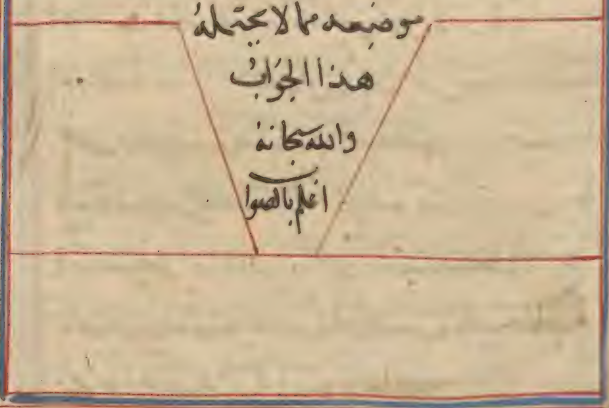 موضعه مما لا يحتمله
هذا الجوابُ
والله سبحانه
اعلم بالصواب